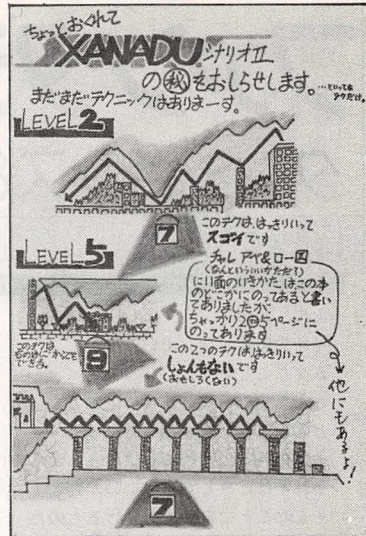 ちょっとおくれて
XANADUシナリオII
の㊙をおしらせします。…といっても
テクだけ。
まだまだテクニックはありまーす。
LEVEL2
7
このテクは、はっきりいって
スゴイです
LEVEL5
チャレアベ&ロー図
(なんといういいかただ?)
に11面のいきかた。はこの本
のどこかにのってあると書い
てありましたが
ちゃっかり2
5ページに
のってあります
このテクは
でき
9
この2つのテクは、はっきりいって
しょんもないです
(おもしろくない)
他にもあるよ!
7